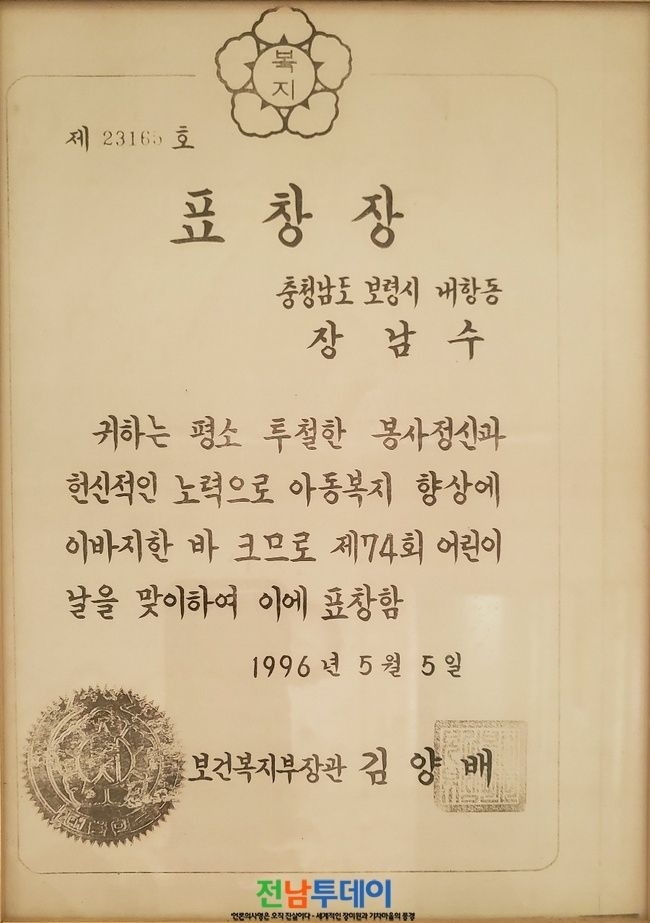 복지
제 23165 호
표창장
충청남도 보령시 내항동
장남수
귀하는 평소 투철한 봉사정신과
헌신적인 노력으로 아동복지 향상에
이바지한 바 크므로 제74회 어린이
날을 맞이하여 이에 표창함
1996년 5월 5일
보건복지부장관 김양배
전남투데이
언론의사명은 오직 진실이다 - 세계적인 장미원과 기차마을의 풍경